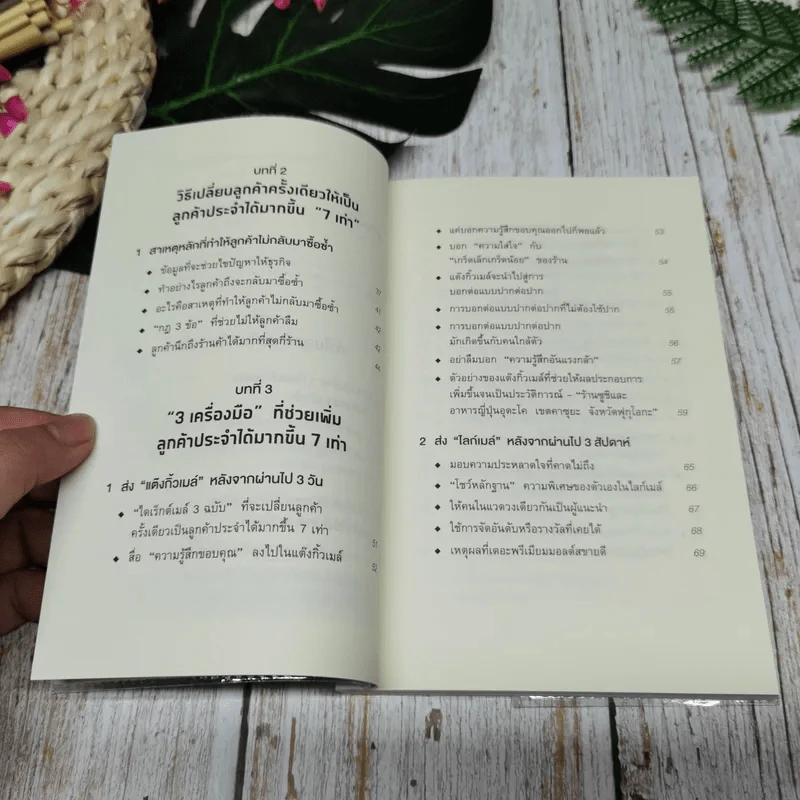 บทที่ 2
วิธีเปลี่ยนลูกค้าครั้งเดียวให้เป็น
ลูกค้าประจำได้มากขึ้น “7 เท่า”
1 สาเหตุหลักที่ทำให้ลูกค้าไม่กลับมาซื้อซ้ำ
◆ ข้อมูลที่จะช่วยไขปัญหาให้ธุรกิจ
◆ ทำอย่างไรลูกค้าถึงจะกลับมาซื้อซ้ำ 39
◆ อะไรคือสาเหตุที่ทำให้ลูกค้าไม่กลับมาซื้อซ้ำ 41
◆ “กฎ 3 ข้อ” ที่ช่วยไม่ให้ลูกค้าลืม 42
◆ ลูกค้านึกถึงร้านค้าได้มากที่สุดกี่ร้าน 42
44
บทที่ 3
“3 เครื่องมือ” ที่ช่วยเพิ่ม
ลูกค้าประจำได้มากขึ้น 7 เท่า
1 ส่ง “แต๊งกิ้วเมล์” หลังจากผ่านไป 3 วัน
◆ “ไดเร็กต์เมล์ 3 ฉบับ” ที่จะเปลี่ยนลูกค้า
ครั้งเดียวเป็นลูกค้าประจำได้มากขึ้น 7 เท่า 51
◆ สื่อ “ความรู้สึกขอบคุณ” ลงไปในแต๊งกิ้วเมล์ 52
◆ แค่บอกความรู้สึกขอบคุณออกไปก็พอแล้ว 53
◆ บอก “ความใส่ใจ” กับ
“เกร็ดเล็กเกร็ดน้อย” ของร้าน 54
◆ แต๊งกิ้วเมล์จะนำไปสู่การ
บอกต่อแบบปากต่อปาก 55
◆ การบอกต่อแบบปากต่อปากที่ไม่ต้องใช้ปาก 55
◆ การบอกต่อแบบปากต่อปาก
มักเกิดขึ้นกับคนใกล้ตัว 56
◆ อย่าลืมบอก “ความรู้สึกอันแรงกล้า” 57
◆ ตัวอย่างของแต๊งกิ้วเมล์ที่ช่วยให้ผลประกอบการ
เพิ่มขึ้นจนเป็นประวัติการณ์ - “ร้านซูชิและ
อาหารญี่ปุ่นอุตะโค เขตคาซุยะ จังหวัดฟุกุโอกะ” 59
2 ส่ง “ไลก์เมล์” หลังจากผ่านไป 3 สัปดาห์
◆ มอบความประหลาดใจที่คาดไม่ถึง 65
◆ “โชว์หลักฐาน” ความพิเศษของตัวเองในไลก์เมล์ 66
◆ ให้คนในแวดวงเดียวกันเป็นผู้แนะนำ 67
◆ ใช้การจัดอันดับหรือรางวัลที่เคยได้ 68
◆ เหตุผลที่เดอะพรีเมียมมอลต์สขายดี 69